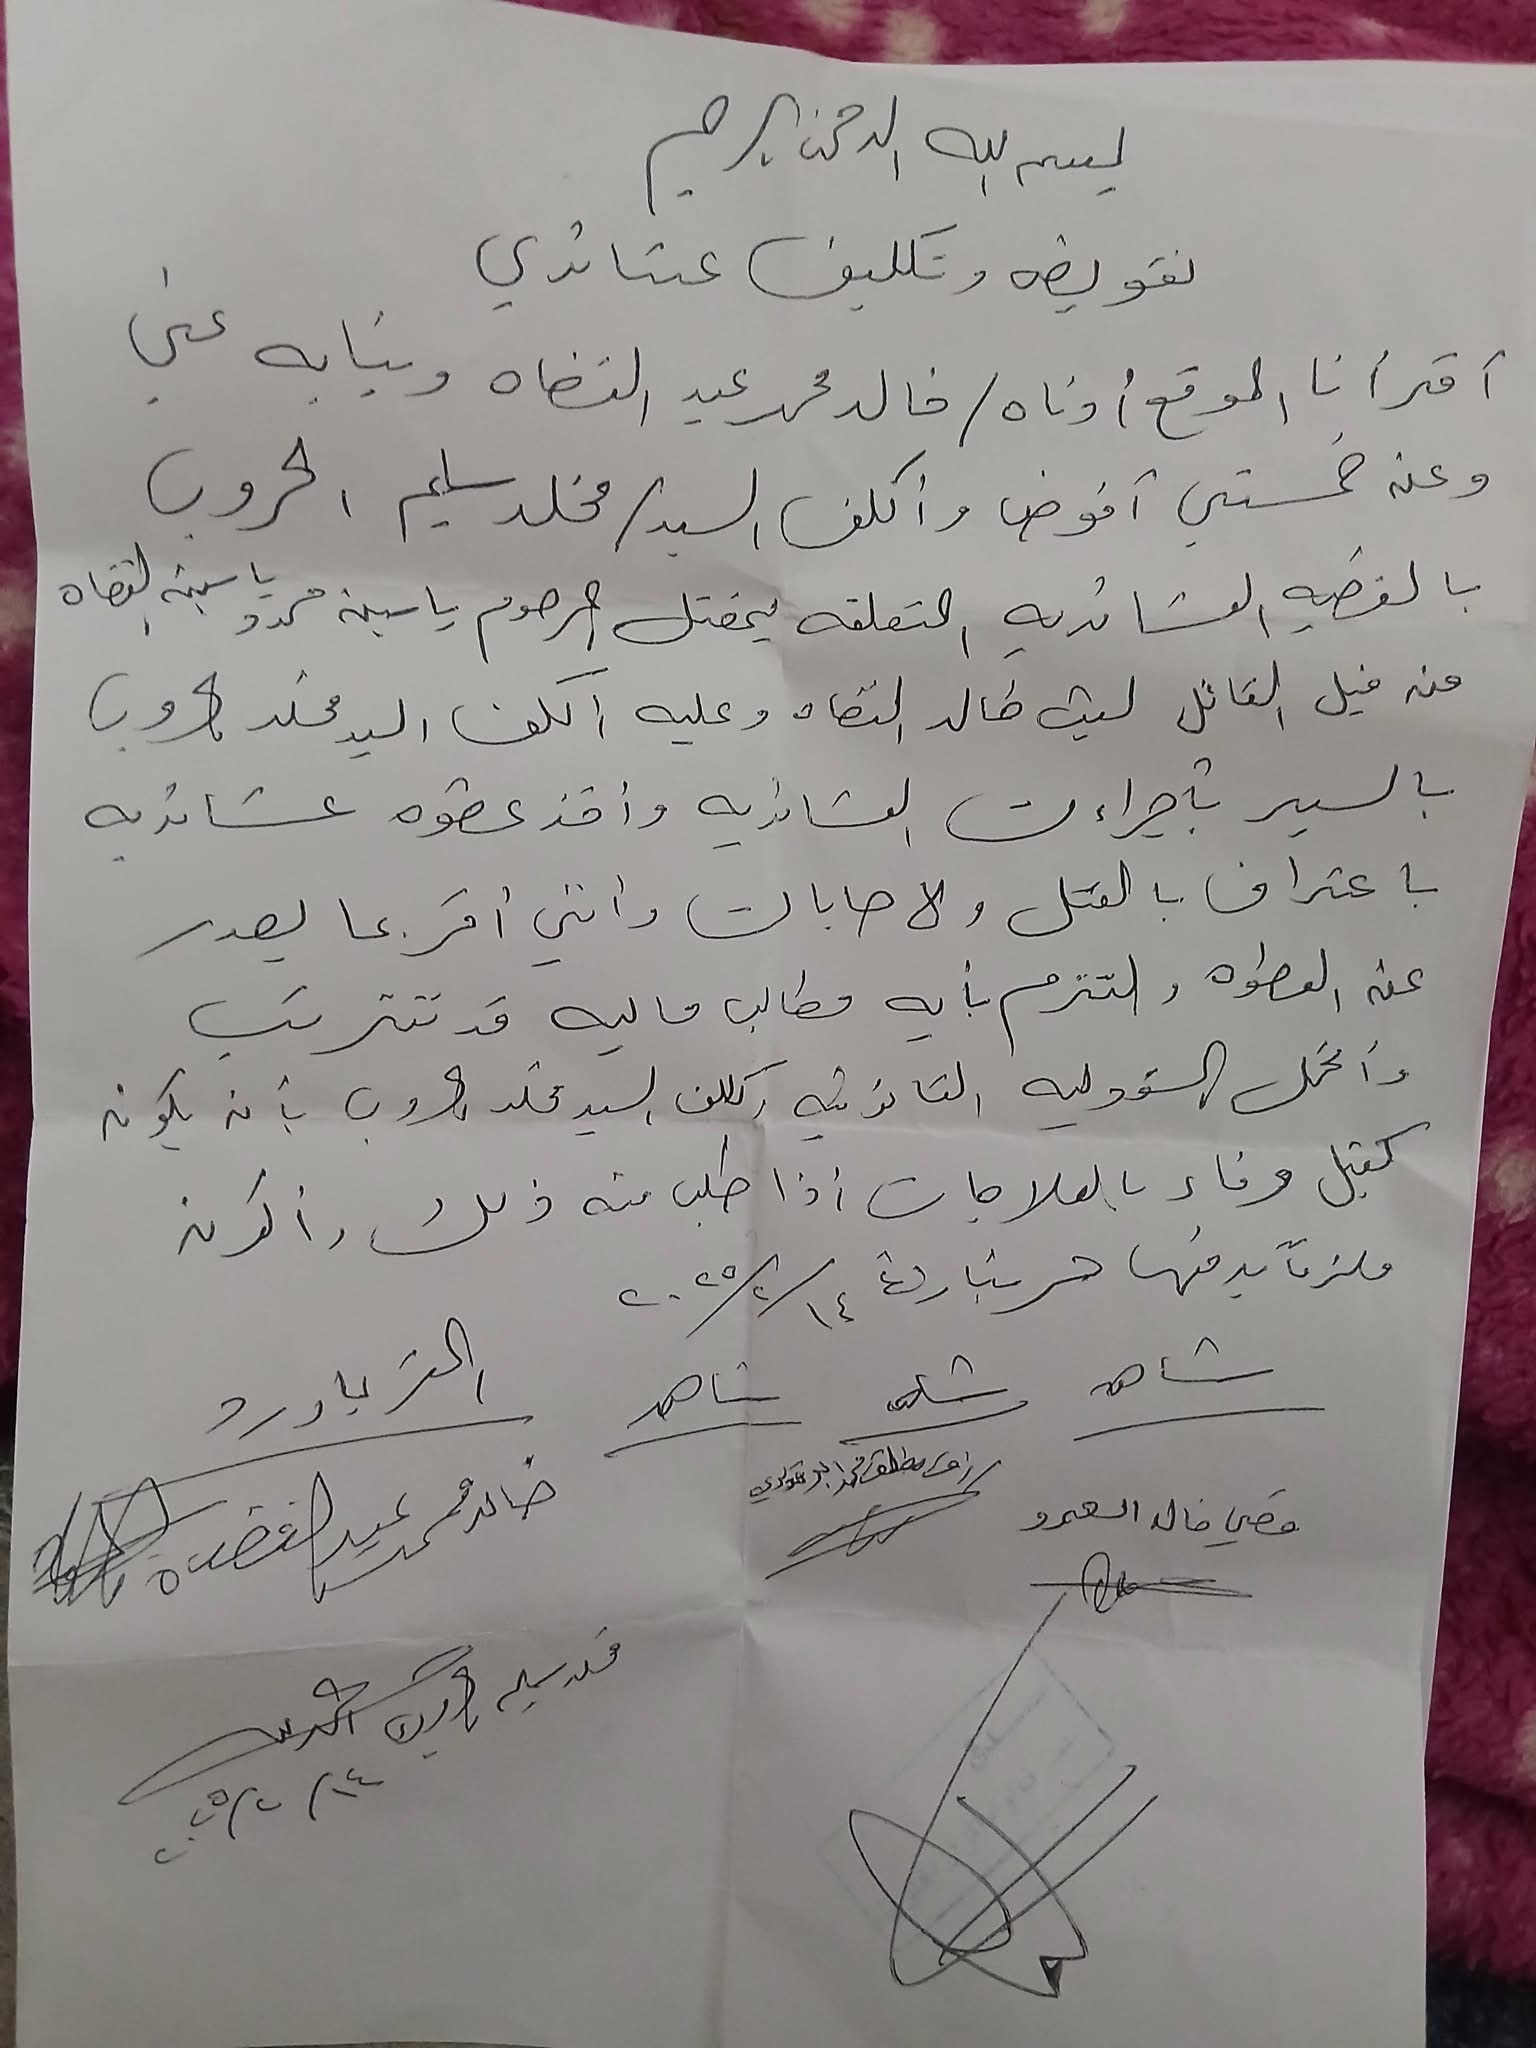 بسم الله الرحمن الرحيم
تفويض وتكليف عشائري
أقر أنا الموقع أدناه / خالد محمد عيد القضاه ونيابه عني
وعن خمستي أفوض وأكلف السيد / مخلد سليم الحروب
بالقضيه العشائريه المتعلقه بمقتل المرحوم ياسين محمد ياسين القضاه
من قبل القاتل ليث خالد القضاه وعليه أكلف السيد مخلد الحروب
بالسير بأجراءات العشائريه وأخذ عطوه عشائريه
باعتراف بالقتل والاصابات وانني أقر بما يصدر
عن العطوه والتزم بأيه مطالب ماليه قد تترتب
وأتحمل المسؤوليه القانونيه وأكلف السيد مخلد الحروب بأن يكون
كفيل وفاء بالعلاجات أذا طلب منه ذلك وأكون
ملزماً بدفعها حرر بتاريخ ١٤/٢/٢٠٢٥
شاهد شاهد شاهد المقر بما ورد
قصي خالد العمرو محمد خالد محمد عيد القضاه
مخلد سليم الحروب
١٤/٢/٢٠٢٥